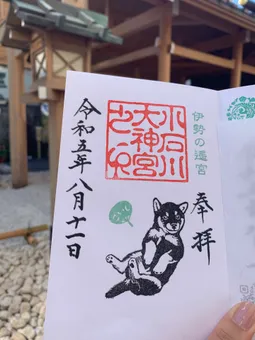 奉拝
伊勢の遥宮
小石川
大神宮
之印
令和五年八月十一日